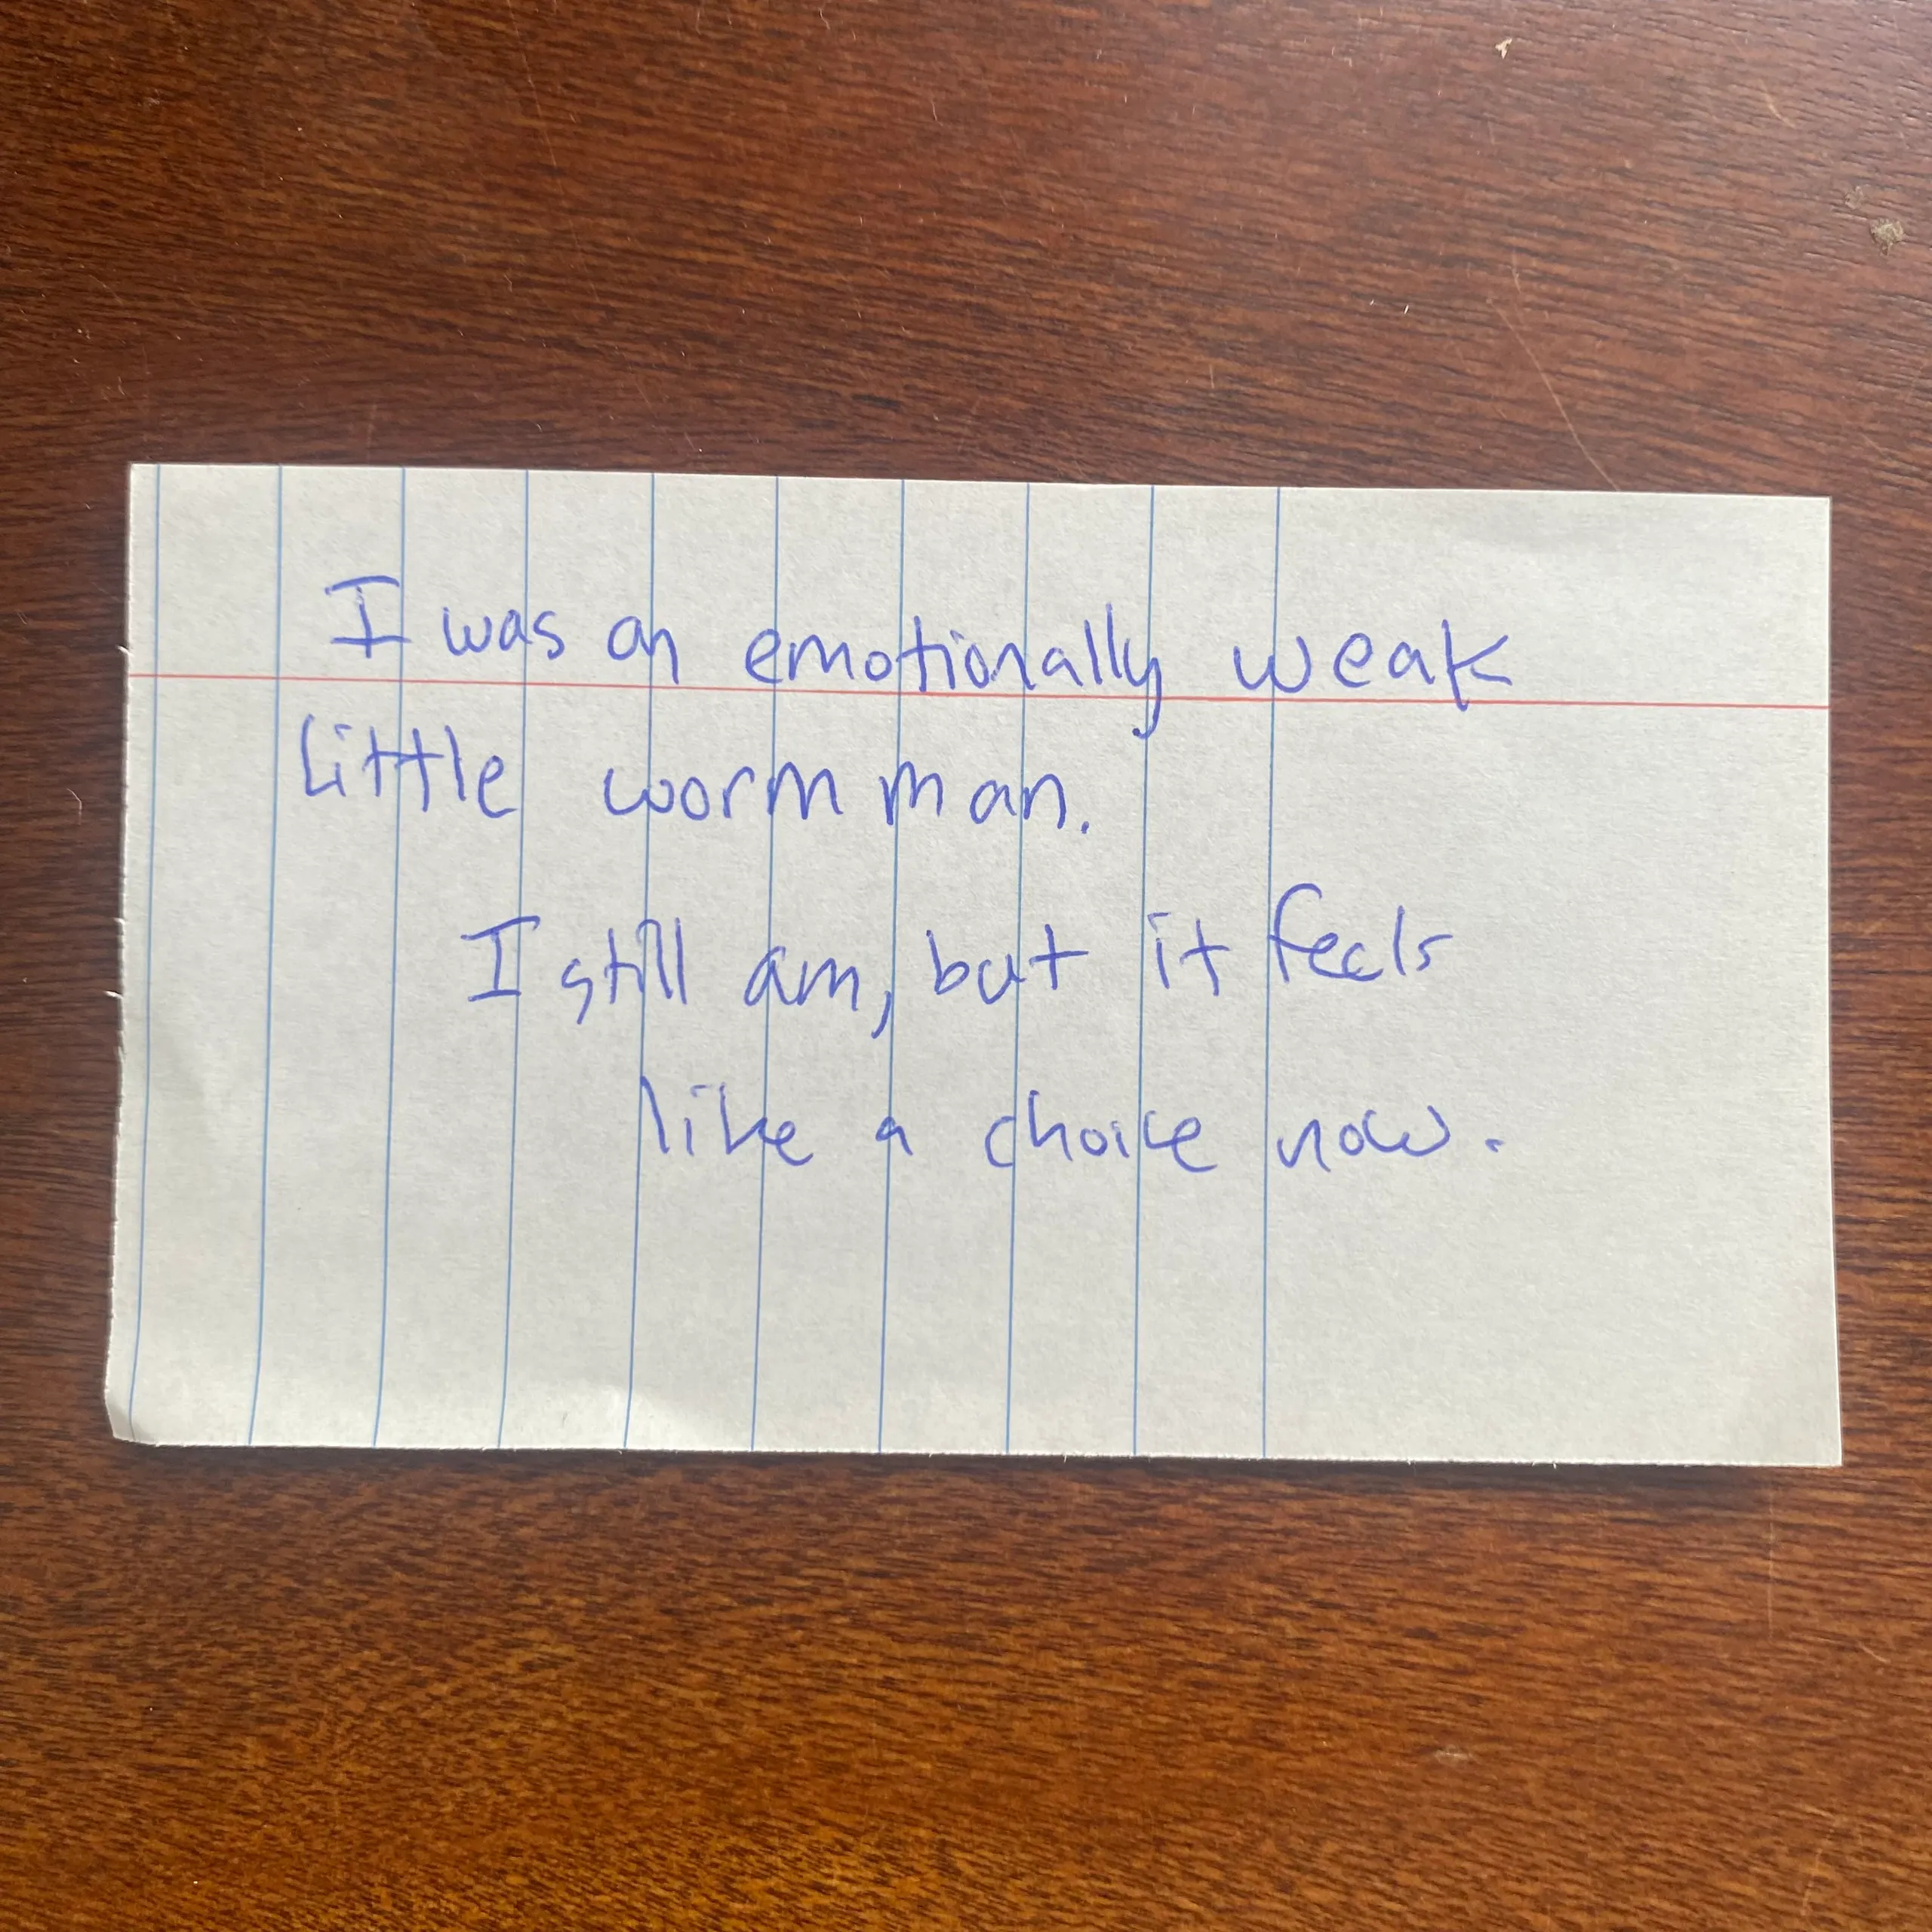 I was an emotionally weak
little worm man.
I still am, but it feels
like a choice now.